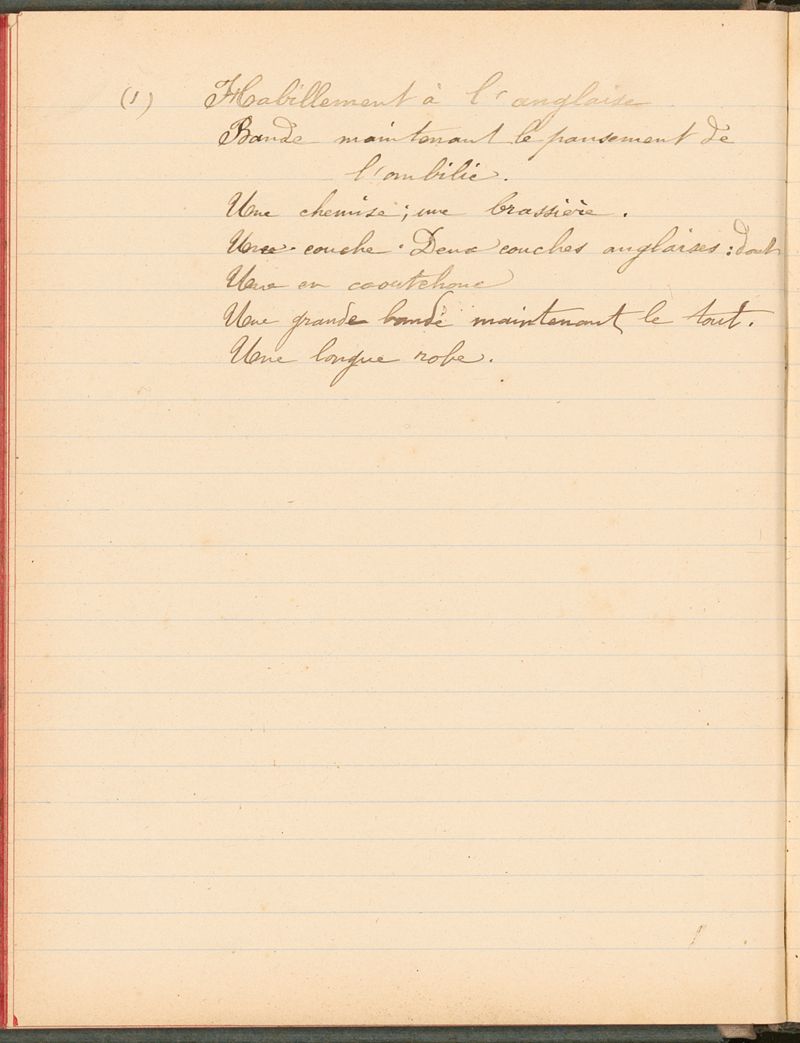 (1) Habillement à l'anglaise
Bande maintenant le pansement de
l'ombilic.
Une chemise ; une brassière.
Une couche. Deux couches anglaises : dont
Une en caoutchouc
Une grande bande maintenant le tout.
Une longue robe.